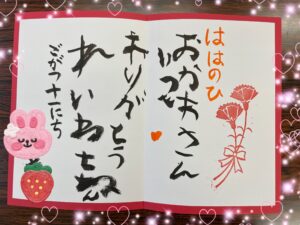 ははのひ
おかあさん
いつも
ありがとう
れいわちゃん
ごがつ十一にち